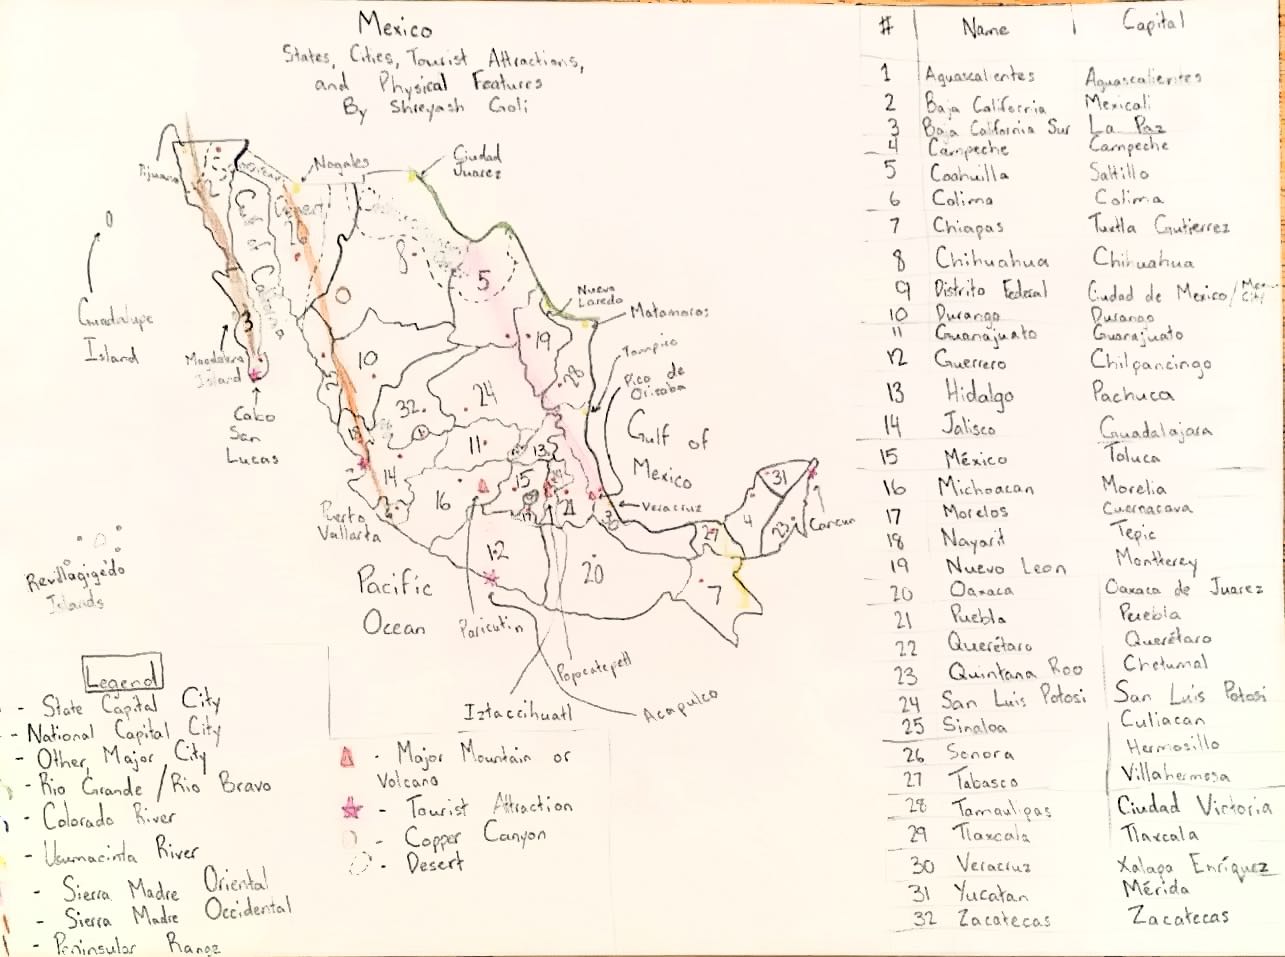 Mexico
States, Cities, Tourist Attractions,
and Physical Features
By Shreyash Goli
Tijuana
Nogales
Ciudad
Juarez
Desert
Gulf of California
Guadalupe
Island
Magdalena
Island
Cabo
San
Lucas
Nuevo
Laredo
Matamoros
Tampico
Pico de
Orizaba
Gulf of
Mexico
Veracruz
Cancun
Puerto
Vallarta
Revillagigedo
Islands
Pacific
Ocean
Paricutin
Popocatepetl
Iztaccihuatl
Acapulco
2
3
8
5
10
19
28
25
32
24
18
1
11
13
14
16
15
17
21
30
12
20
27
7
4
31
23
Legend
- State Capital City
- National Capital City
- Other Major City
- Rio Grande / Rio Bravo
- Colorado River
- Usumacinta River
- Sierra Madre Oriental
- Sierra Madre Occidental
- Peninsular Range
- Major Mountain or
Volcano
- Tourist Attraction
- Copper Canyon
- Desert
# Name Capital
1 Aguascalientes Aguascalientes
2 Baja California Mexicali
3 Baja California Sur La Paz
4 Campeche Campeche
5 Coahuilla Saltillo
6 Colima Colima
7 Chiapas Tuxtla Gutierrez
8 Chihuahua Chihuahua
9 Distrito Federal Ciudad de Mexico/Mex. City
10 Durango Durango
11 Guanajuato Guanajuato
12 Guerrero Chilpancingo
13 Hidalgo Pachuca
14 Jalisco Guadalajara
15 México Toluca
16 Michoacan Morelia
17 Morelos Cuernacava
18 Nayarit Tepic
19 Nuevo Leon Monterrey
20 Oaxaca Oaxaca de Juarez
21 Puebla Puebla
22 Querétaro Querétaro
23 Quintana Roo Chetumal
24 San Luis Potosi San Luis Potosi
25 Sinaloa Culiacan
26 Sonora Hermosillo
27 Tabasco Villahermosa
28 Tamaulipas Ciudad Victoria
29 Tlaxcala Tlaxcala
30 Veracruz Xalapa Enríquez
31 Yucatan Mérida
32 Zacatecas Zacatecas